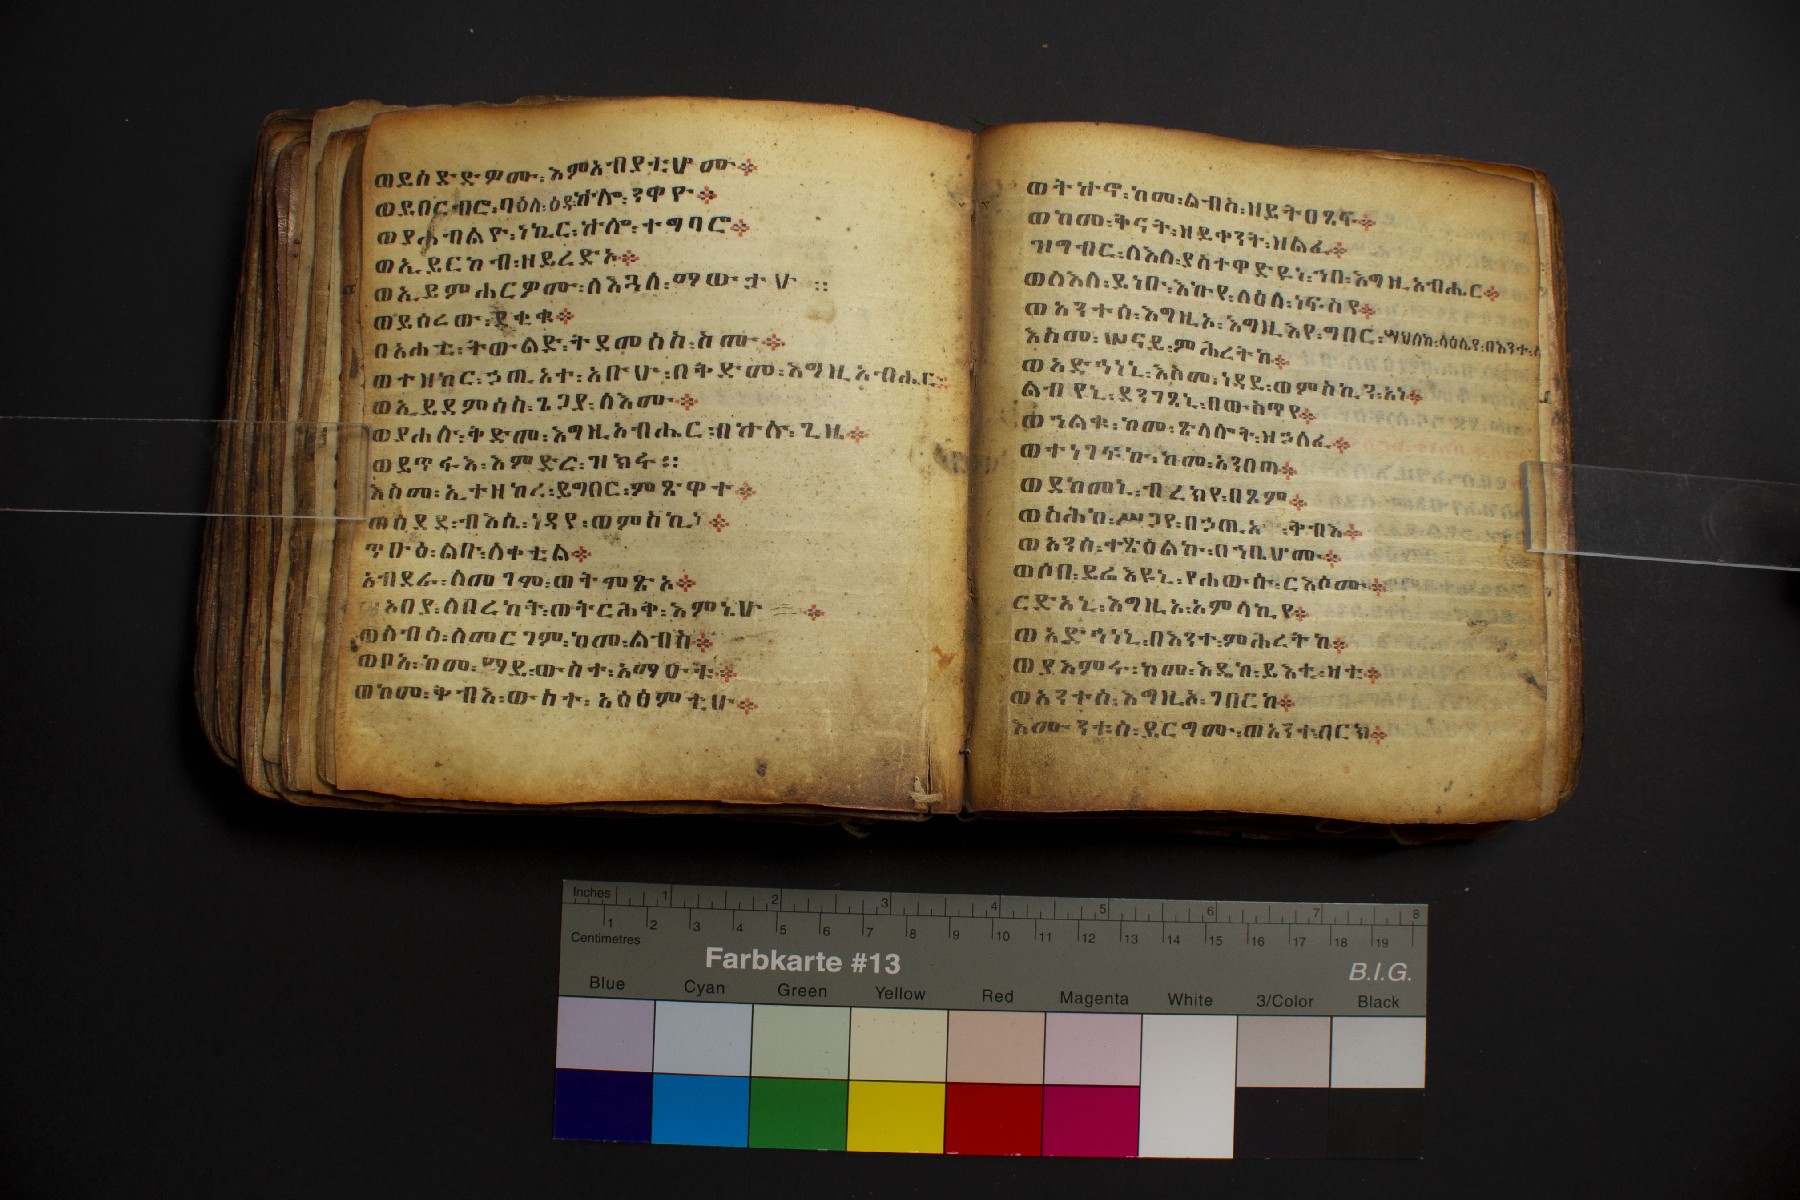 ወይስድድዎሙ፡እምአብያቲሆሙ፨
ወይበርብሮ፡ባዕለ፡ዕዳ፡ኵሎ፡ንዋዮ፨
ወያሐብልዮ፡ነኪር፡ኵሎ፡ተግባሮ፨
ወኢይርከብ፡ዘይረድኦ፨
ወኢይምሐርዎሙ፡ለእጓለ፡ማውታሁ ፡፡
ወይሰረው፡ደቂቁ፨
በአሐቲ፡ትውልድ፡ትደመሰስ፡ስሙ፨
ወተዝከር፡ኃጢአተ፡አቡሁ፡በቅድመ፡እግዚአብሔር፨
ወኢይደምሰስ፡ጌጋያ፡ለእሙ፨
ወያሐሉ፡ቅድመ፡እግዚአብሔር፡በኵሉ፡ጊዜ፨
ወይጥፋእ፡እምድር፡ዝክሩ፡፡
እስመ፡ኢተዘከረ፡ይግበር፡ምጽዋተ፨
ወሰደደ፡ብእሴ፡ነዳየ፡ወምስኪነ፨
ጥቡዕ፡ልቡ፡ለቀቲል፨
አብደራ፡ለመገም፡ወትመጽኦ፨
አበያ፡ለበረከት፡ወትርሕቅ፡እምኔሁ፨
ወለብሳ፡ለመርገም፡ከመ፡ልብስ፨
ወቦአ፡ከመ፡ማይ፡ውስተ፡አማዑቱ፨
ወከመ፡ቅብእ፡ውስተ፡አዕፅምቲሁ፨
ወትኵኖ፡ከመ፡ልብስ፡ዘይትዐጸፍ፨
ወከመ፡ቅናት፡ዘይቀንት፡ዘልፈ፨
ዝግብር፡ለእለ፡ያስተዋድዩኒ፡ኀበ፡እግዚአብሔር፨
ወለእለ፡ይነቡ፡እኩየ፡ላዕለ፡ነፍስየ፨
ወአንተሰ፡እግዚኦ፡እግዚእየ፡ግበር፡ሣህለከ፡ላዕሌየ፡በእንተ፡ስ
እስመ፡ሠናይ፡ምሕረትከ፨
ወአድኅነኒ፡እስመ፡ነዳይ፡ወምስኪን፡አነ፨
ልብየኒ፡ደንገፀኒ፡በውስጥየ፨
ወኀልቁ፡ከመ፡ጽላሎት፡ዘኃለፈ፨
ወተነገፍኩ፡ከመ፡አንበጣ፨
ወደከመኒ፡ብረክየ፡በጾም፨
ወስሕከ፡ሥጋየ፡በኃጢአ ፡ቅብእ፨
ወአንሰ፡ተጽዕልኩ፡በኀቤሆሙ፨
ወሶበ፡ይሬእዩኒ፡የሐውሱ፡ርእሶሙ፨
ርድአኒ፡እግዚኦ፡አምላኪየ፨
ወአድኅነኒ፡በእንተ፡ምሕረትከ፨
ወያእምሩ፡ከመ፡እዴከ፡ይእቲ፡ዛቲ፨
ወአንተሰ፡እግዚኦ፡ገበርከ፨
እሙንቱሰ፡ይርግሙ፡ወአንተ፡ባርክ፨
Inches 1 2 3 4 5 6 7 8
1 2 3 4 5 6 7 8 9 10 11 12 13 14 15 16 17 18 19
Centimetres
Farbkarte #13
B.I.G.
Blue Cyan Green Yellow Red Magenta White 3/Color Black